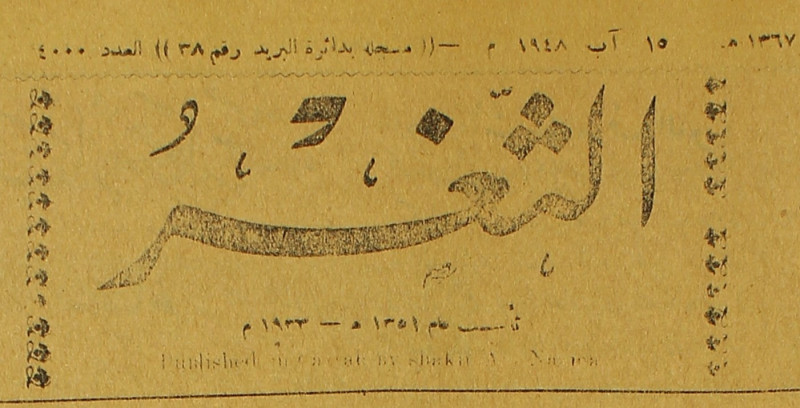 ١٣٦٧ هـ ١٥ آب ١٩٤٨ م —(( مسجلة بدائرة البريد رقم ٣٨ )) العدد ٤٠٠٠
الثغر
تأسست عام ١٣٥١ هـ — ١٩٣٣ م
Published in by shakir